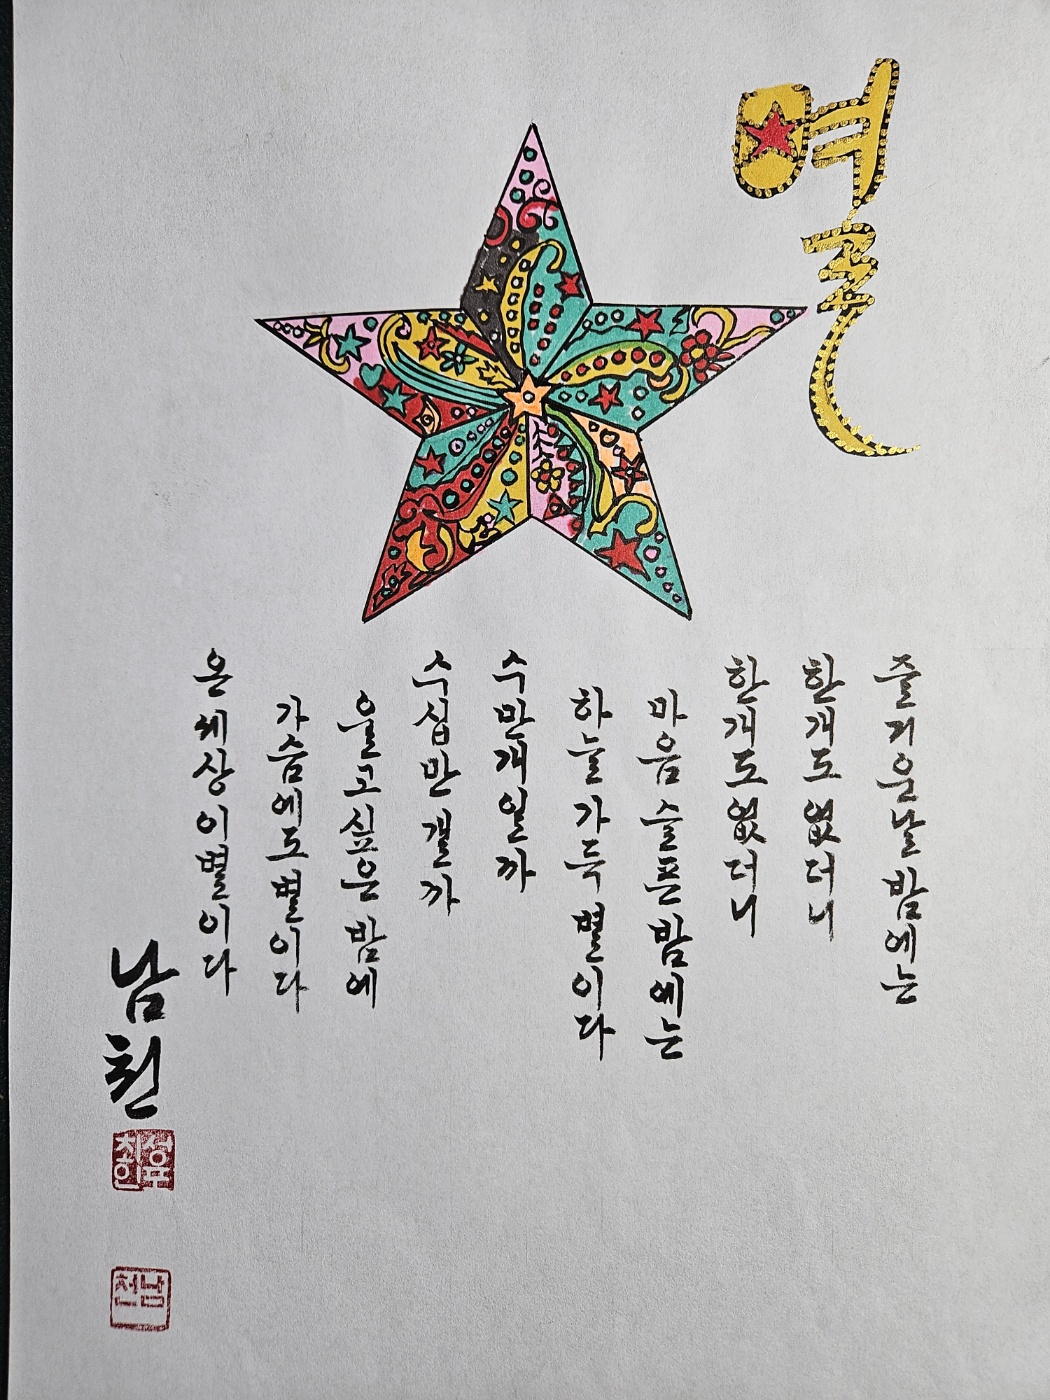 별
즐거운날 밤에는
한개도 없더니
한개도 없더니
마음 슬픈 밤에는
하늘 가득 별이다
수만개일까
수십만 갤까
울고싶은 밤에
가슴에도 별이다
온 세상이 별이다
남천
남천